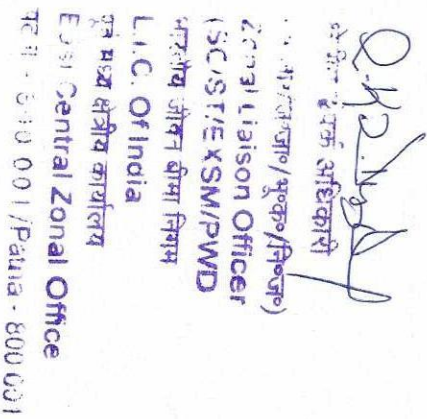 क्षेत्रीय संपर्क अधिकारी
Zonal Liaison Officer
(SC/ST/EXSM/PWD
भारतीय जीवन बीमा निगम
L.I.C. Of India
पूर्व मध्य क्षेत्रीय कार्यालय
East Central Zonal Office
पटना - 800 001/Patna - 800 001